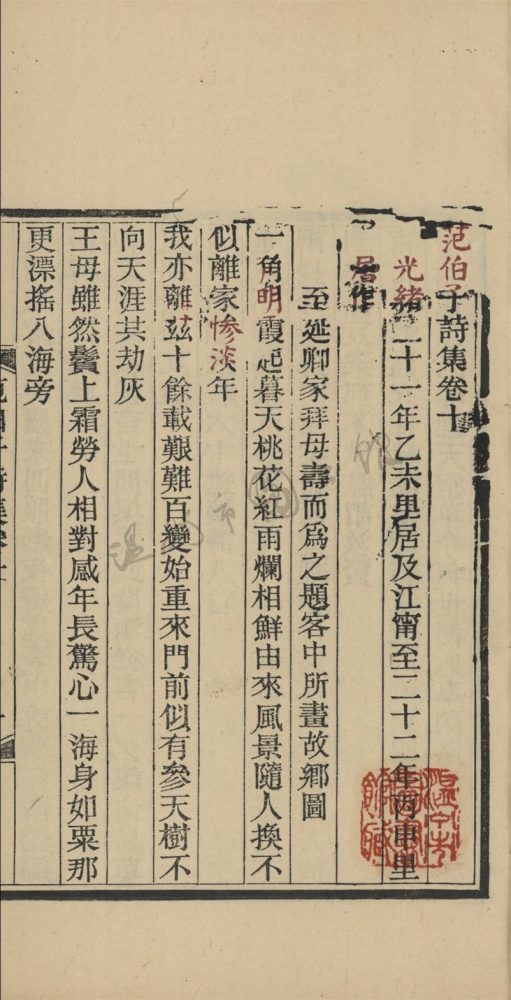 范伯子詩集卷十
光緒二十一年乙未里居及江甯至二十二年丙申里
居作
至延卿家拜母壽而爲之題客中所畫故鄉圖
一角明霞起暮天桃花紅雨爛相鮮由來風景隨人換不
似離家慘淡年
我亦離茲十餘載艱難百變始重來門前似有參天樹不
向天涯共劫灰
王母雖然鬢上霜勞人相對感年長驚心一海身如粟那
更漂搖八海旁